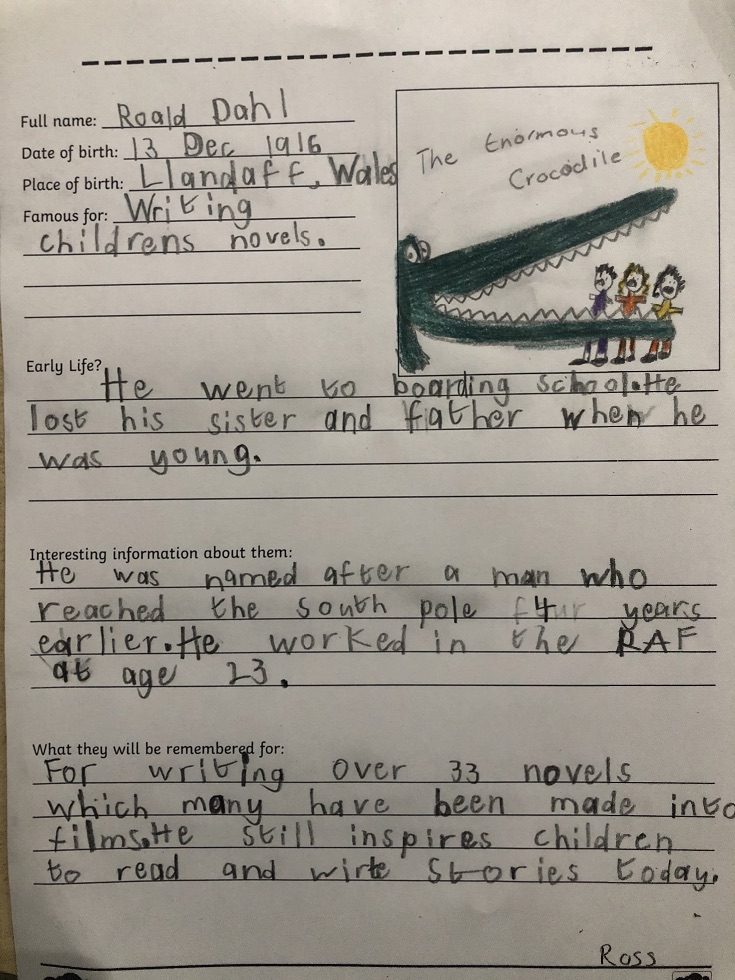 Full name: Roald Dahl
Date of birth: 13 Dec 1916
Place of birth: Llandaff, Wales
Famous for: Writing
childrens novels.
The Enormous
Crocodile
Early Life?
He went to boarding school. He
lost his sister and father when he
was young.
Interesting information about them:
He was named after a man who
reached the south pole 4 years
earlier. He worked in the RAF
at age 23.
What they will be remembered for:
For writing over 33 novels
which many have been made into
films. He still inspires children
to read and wirte stories today.
Ross